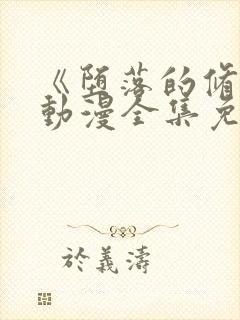 《堕落的脩
动漫全集免
於義濤